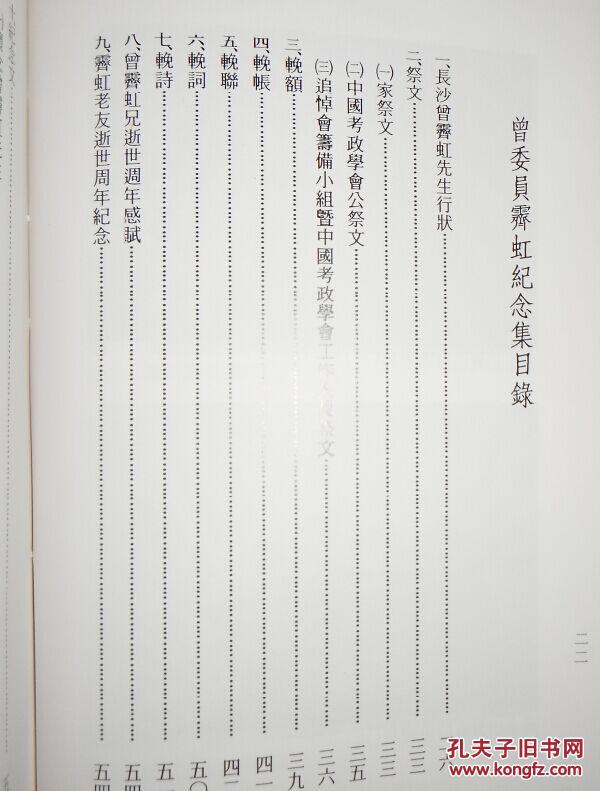 曾委員霽虹紀念集目錄
一、長沙曾霽虹先生行狀……二六
二、祭文……三三
㈠家祭文……三三
㈡中國考政學會公祭文……三五
㈢追悼會籌備小組暨中國考政學會工 文……三六
三、輓額……三九
四、輓帳……四一
五、輓聯……四二
六、輓詞……五〇
七、輓詩……五
八、曾霽虹兄逝世週年感賦……五四
九、霽虹老友逝世周年紀念……五四
二二
孔夫子旧书网
www.kongfz.com